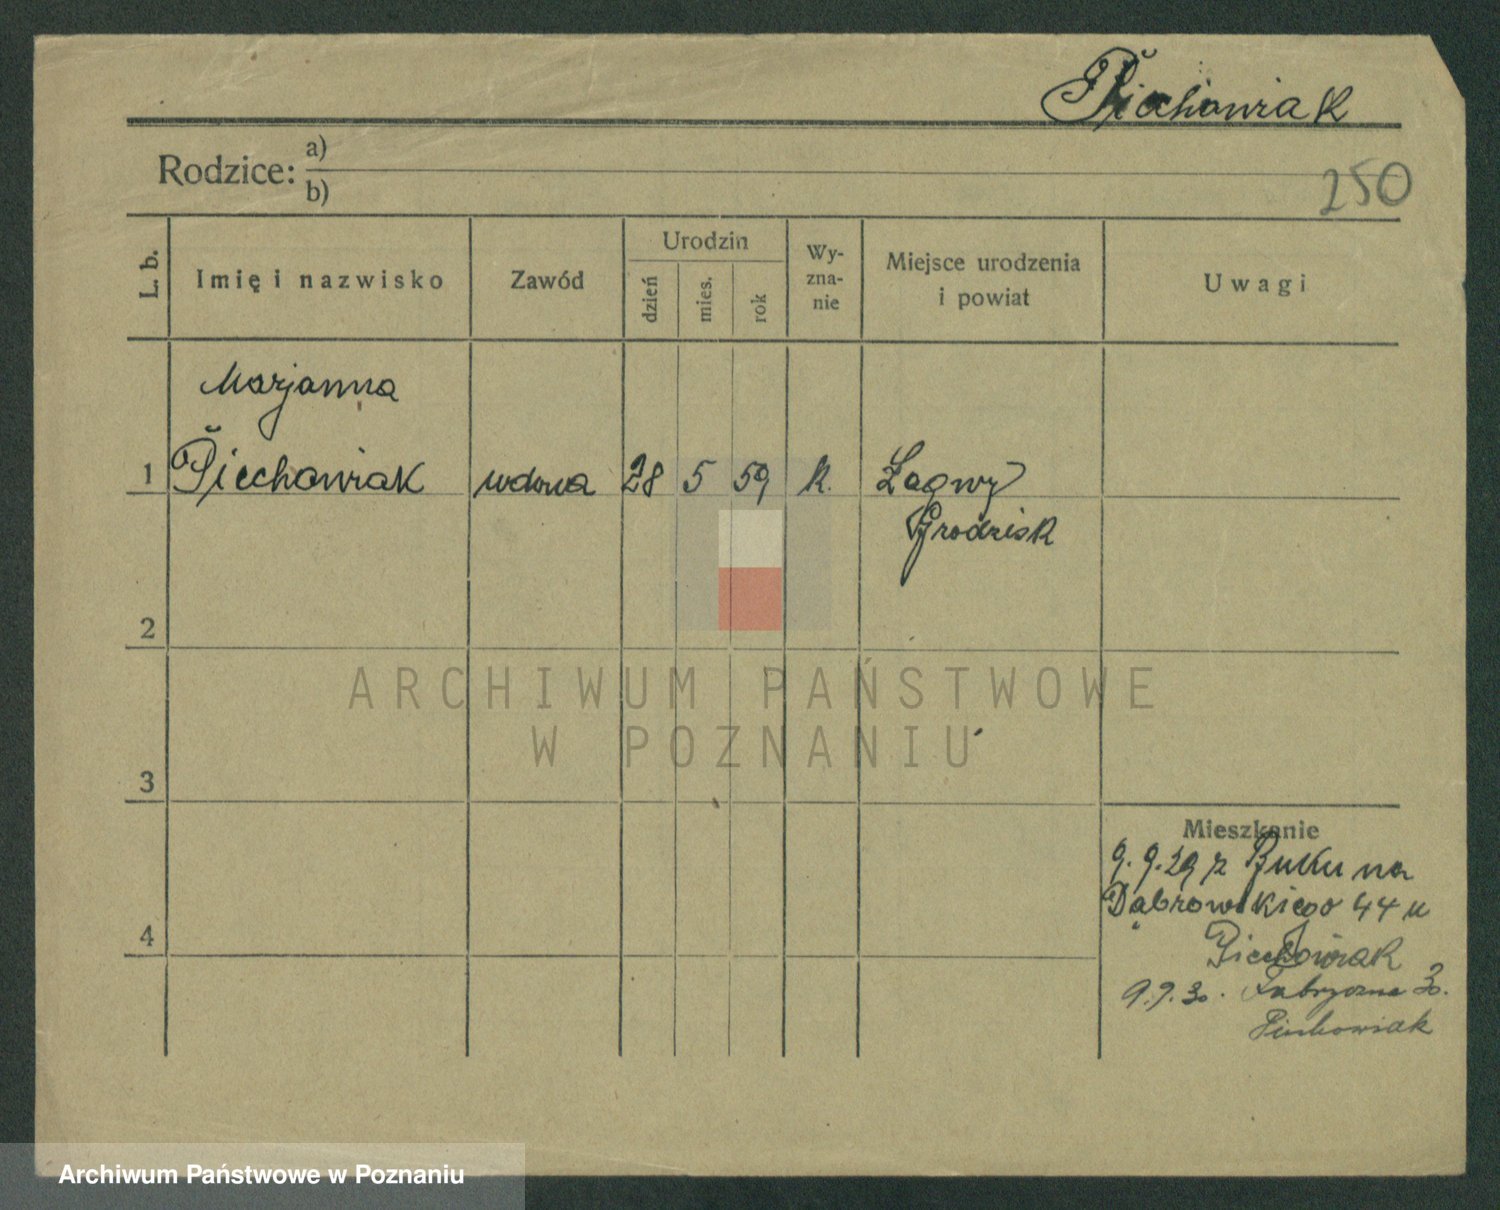 Piechowiak
Rodzice: a)
b)
250
L. b.
Imię i nazwisko
Zawód
Urodzin
dzień
mies.
rok
Wy-
zna-
nie
Miejsce urodzenia
i powiat
Uwagi
Marjanna
1 Piechowiak wdowa 28 5 59 k. Łagwy
Grodzisk
2
ARCHIWUM PAŃSTWOWE
W POZNANIU
3
Mieszkanie
9.9.29 z Buku na
Dąbrowskiego 44 u
4
Piechowiak
9.9.30. Fabryczna 30.
Piechowiak
Archiwum Państwowe w Poznaniu